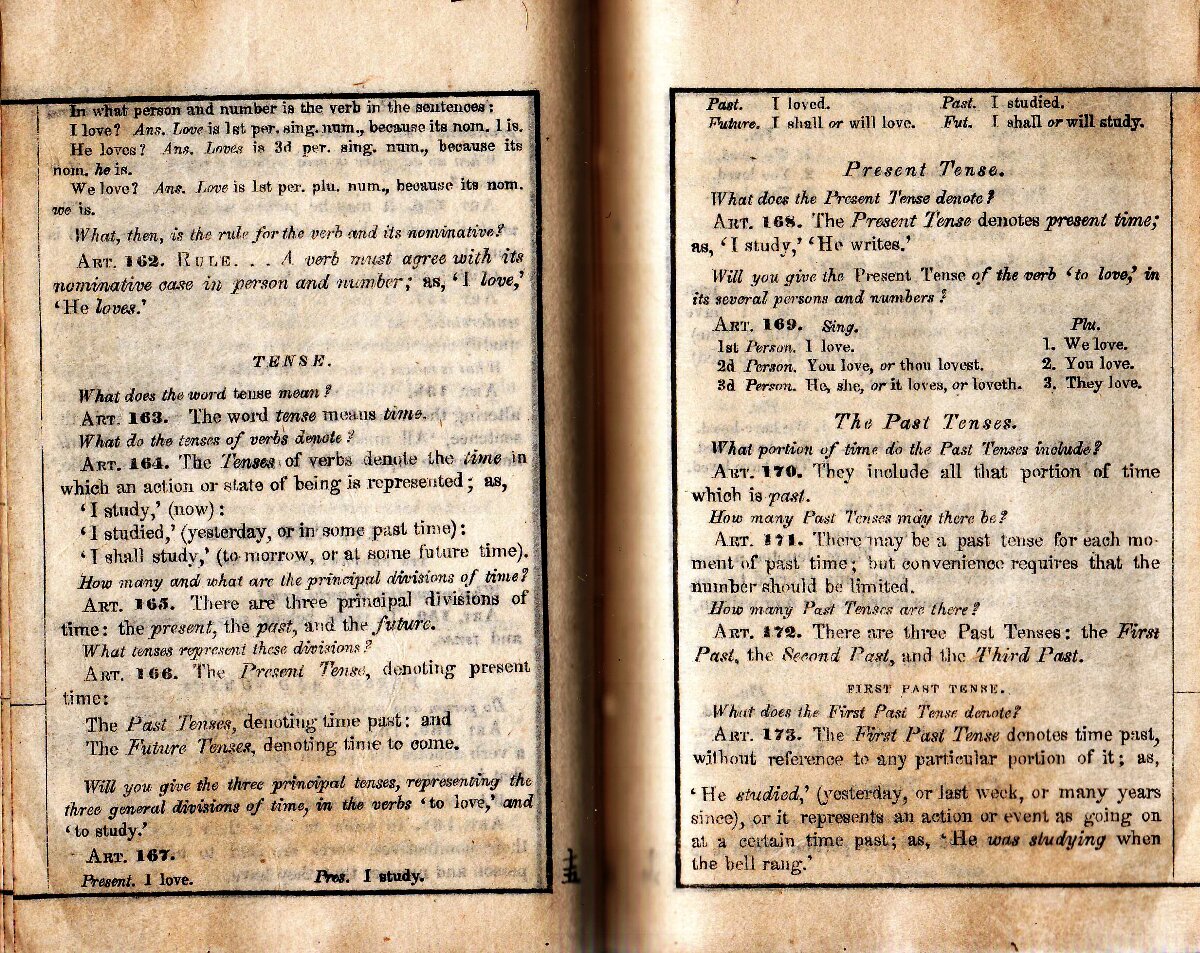 In what person and number is the verb in the sentences:
I love? Ans. Love is 1st per. sing. num., because its nom. I is.
He loves? Ans. Loves is 3d per. sing. num., because its
nom. he is.
We love? Ans. Love is 1st per. plu. num., because its nom.
we is.
What, then, is the rule for the verb and its nominative?
ART. 162. RULE. . . A verb must agree with its
nominative case in person and number; as, ‘I love,’
‘He loves.’
TENSE.
What does the word tense mean?
ART. 163. The word tense means time.
What do the tenses of verbs denote?
ART. 164. The Tenses of verbs denote the time in
which an action or state of being is represented; as,
‘I study,’ (now):
‘I studied,’ (yesterday, or in some past time):
‘I shall study,’ (to morrow, or at some future time).
How many and what are the principal divisions of time?
ART. 165. There are three principal divisions of
time: the present, the past, and the future.
What tenses represent these divisions?
ART. 166. The Present Tense, denoting present
time:
The Past Tenses, denoting time past: and
The Future Tenses, denoting time to come.
Will you give the three principal tenses, representing the
three general divisions of time, in the verbs ‘to love,’ and
‘to study.’
ART. 167.
Present. I love. Pres. I study.
五
Past. I loved. Past. I studied.
Future. I shall or will love. Fut. I shall or will study.
Present Tense.
What does the Present Tense denote?
ART. 168. The Present Tense denotes present time;
as, ‘I study,’ ‘He writes.’
Will you give the Present Tense of the verb ‘to love,’ in
its several persons and numbers?
ART. 169. Sing. Plu.
1st Person. I love. 1. We love.
2d Person. You love, or thou lovest. 2. You love.
3d Person. He, she, or it loves, or loveth. 3. They love.
The Past Tenses.
What portion of time do the Past Tenses include?
ART. 170. They include all that portion of time
which is past.
How many Past Tenses may there be?
ART. 171. There may be a past tense for each mo-
ment of past time; but convenience requires that the
number should be limited.
How many Past Tenses are there?
ART. 172. There are three Past Tenses: the First
Past, the Second Past, and the Third Past.
FIRST PAST TENSE.
What does the First Past Tense denote?
ART. 173. The First Past Tense denotes time past,
without reference to any particular portion of it; as,
‘He studied,’ (yesterday, or last week, or many years
since), or it represents an action or event as going on
at a certain time past; as, ‘He was studying when
the bell rang.’